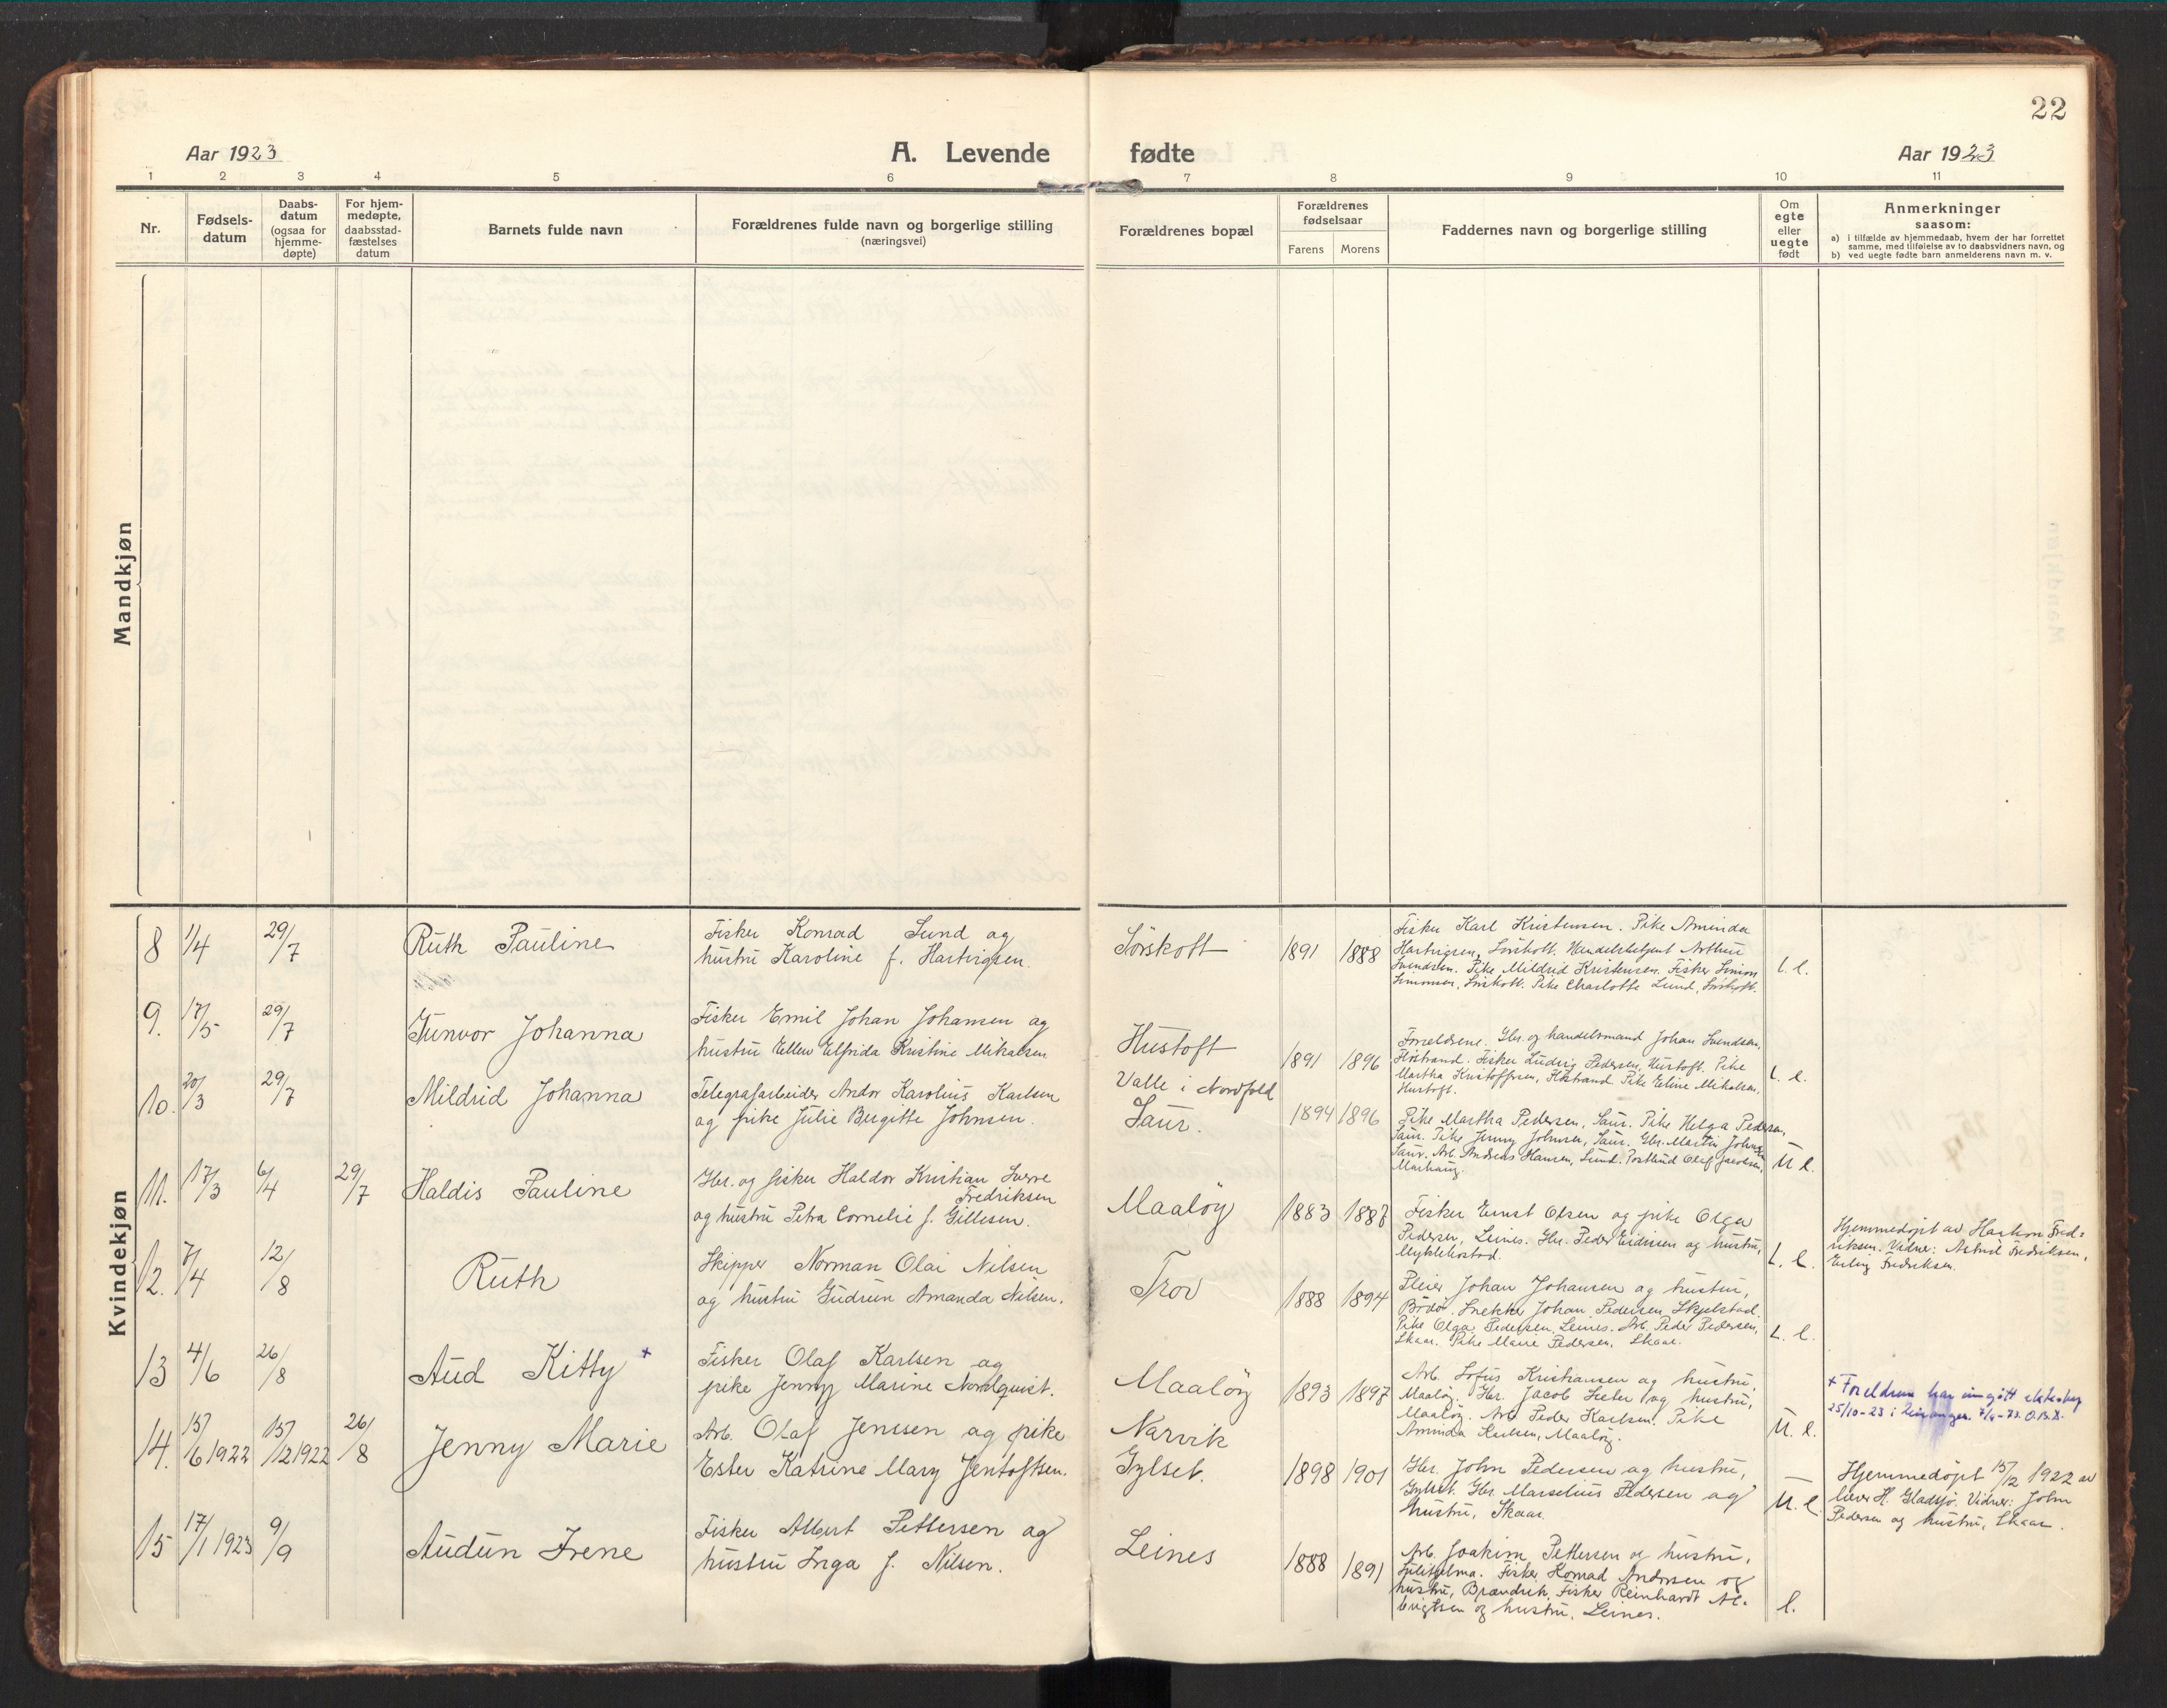 22
Aar 1923
A. Levende
fødte
Aar 1923
1 2 3 4 5 6 7 8 9 10 11
Nr.
Fødsels-
datum
Daabs-
datum
(ogsaa for
hjemme-
døpte)
For hjem-
medøpte,
daabsstad-
fæstelses
datum
Barnets fulde navn
Forældrenes fulde navn og borgerlige stilling
(næringsvei)
Forældrenes bopæl
Forældrenes
fødselsaar
Farens
Morens
Faddernes navn og borgerlige stilling
Om
egte
eller
uegte
født
Anmerkninger
saasom:
a) i tilfælde av hjemmedaab, hvem der har forrettet
samme, med tilføielse av to daabsvidners navn, og
b) ved uegte fødte barn anmelderens navn m. v.
Mandkjøn
Kvindekjøn
8 1/4 29/7 Ruth Pauline
Fisker Konrad Lund og
hustru Karoline f. Hartvigsen.
Sørskott 1891 1888
Fisker Karl Kristensen. Pike Aminda
Hartvigsen, Sørskott. Handelsbetjent Arthur
Svendsen. Pike Mildrid Kristensen. Fisker Simon
Simonsen, Sørskott. Pike Charlotte Lund, Sørskott.
9. 17/5 29/7 Gunvor Johanna
Fisker Emil Johan Johansen og
hustru Ellen Elfrida Kristine Mikalsen
Hustoft 1891 1896
Forældrene. Gbr. og handelsmand Johan Svendsen,
Fisker Ludvig Pedersen, Hustoft. Pike
Martha Kristoffersen, Pike Eline Mikalsen,
Hustoft.
10. 20/3 29/7 Mildrid Johanna
Telegrafarbeider Andor Karolius Karlsen
og pike Julie Bergitte Johnsen.
Valle i Nordfold
Saur. 1894 1896
Pike Martha Pedersen, Saur. Pike Helga Pedersen,
Saur. Pike Jenny Johnsen, Saur. Gbr. Martin Johnsen
Saur. Arb. Andreas Hansen, Lund. Olaf Jacobsen,
11. 17/3 6/4 29/7 Haldis Pauline
Gbr. og fisker Haldor Kristian Sverre
Fredriksen
og hustru Petra Cornelie f. Gillesen.
Maaløy 1883 1887
Fisker Ernst Olsen og pike Olga
Pedersen, Leines. Gbr. Peder Eidissen og hustru,
Myklebostad.
Hjemmedøpt av Haakon Fred-
riksen. Vidner: Astrid Fredriksen,
Erling Fredriksen.
12. 7/4 12/8 Ruth
Skipper Norman Olai Nilsen
og hustru Gudrun Amanda Nilsen.
Trov 1888 1894
Johan Johansen og hustru,
Bodø. Snekker Johan Pedersen, Skjelstad.
Pike Olga Pedersen, Leines. Arb. Peder Pedersen,
Skaar. Pike Marie Pedersen, Skaar.
13 4/6 26/8 Aud Kitty +
Fisker Olaf Karlsen og
pike Jenny Marine Nordquist.
Maaløy 1893 1897
Arb. Sofus Kristiansen og hustru,
Maaløy. Gbr. Jacob og hustru,
Maaløy. Arb. Peder Karlsen. Pike
Aminda Karlsen, Maaløy.
+ Foreldrene har inngått ekteskap
25/10-23 i Leiranger.
14. 15/6 1922 15/12 1922 26/8 Jenny Marie
Arb. Olaf Jenssen og pike
Ester Katrine Mary Jentoftsen.
Narvik
Gylset. 1898 1901
Gbr. John Pedersen og hustru,
Gylset. Gbr. Marselius Pedersen og
hustru, Skaar.
Hjemmedøpt 15/12 1922 av
lærer H. Gladsjø. Vidner: John
Pedersen og hustru, Skaar.
15 17/1 1923 9/9 Audun Irene
Fisker Albert Pettersen og
hustru Inga f. Nilsen.
Leines 1888 1891
Arb. Joakim Pettersen og hustru,
Fisker Konrad Andersen og
hustru, Fisker Reinhardt Al-
brigtsen og hustru, Leines.